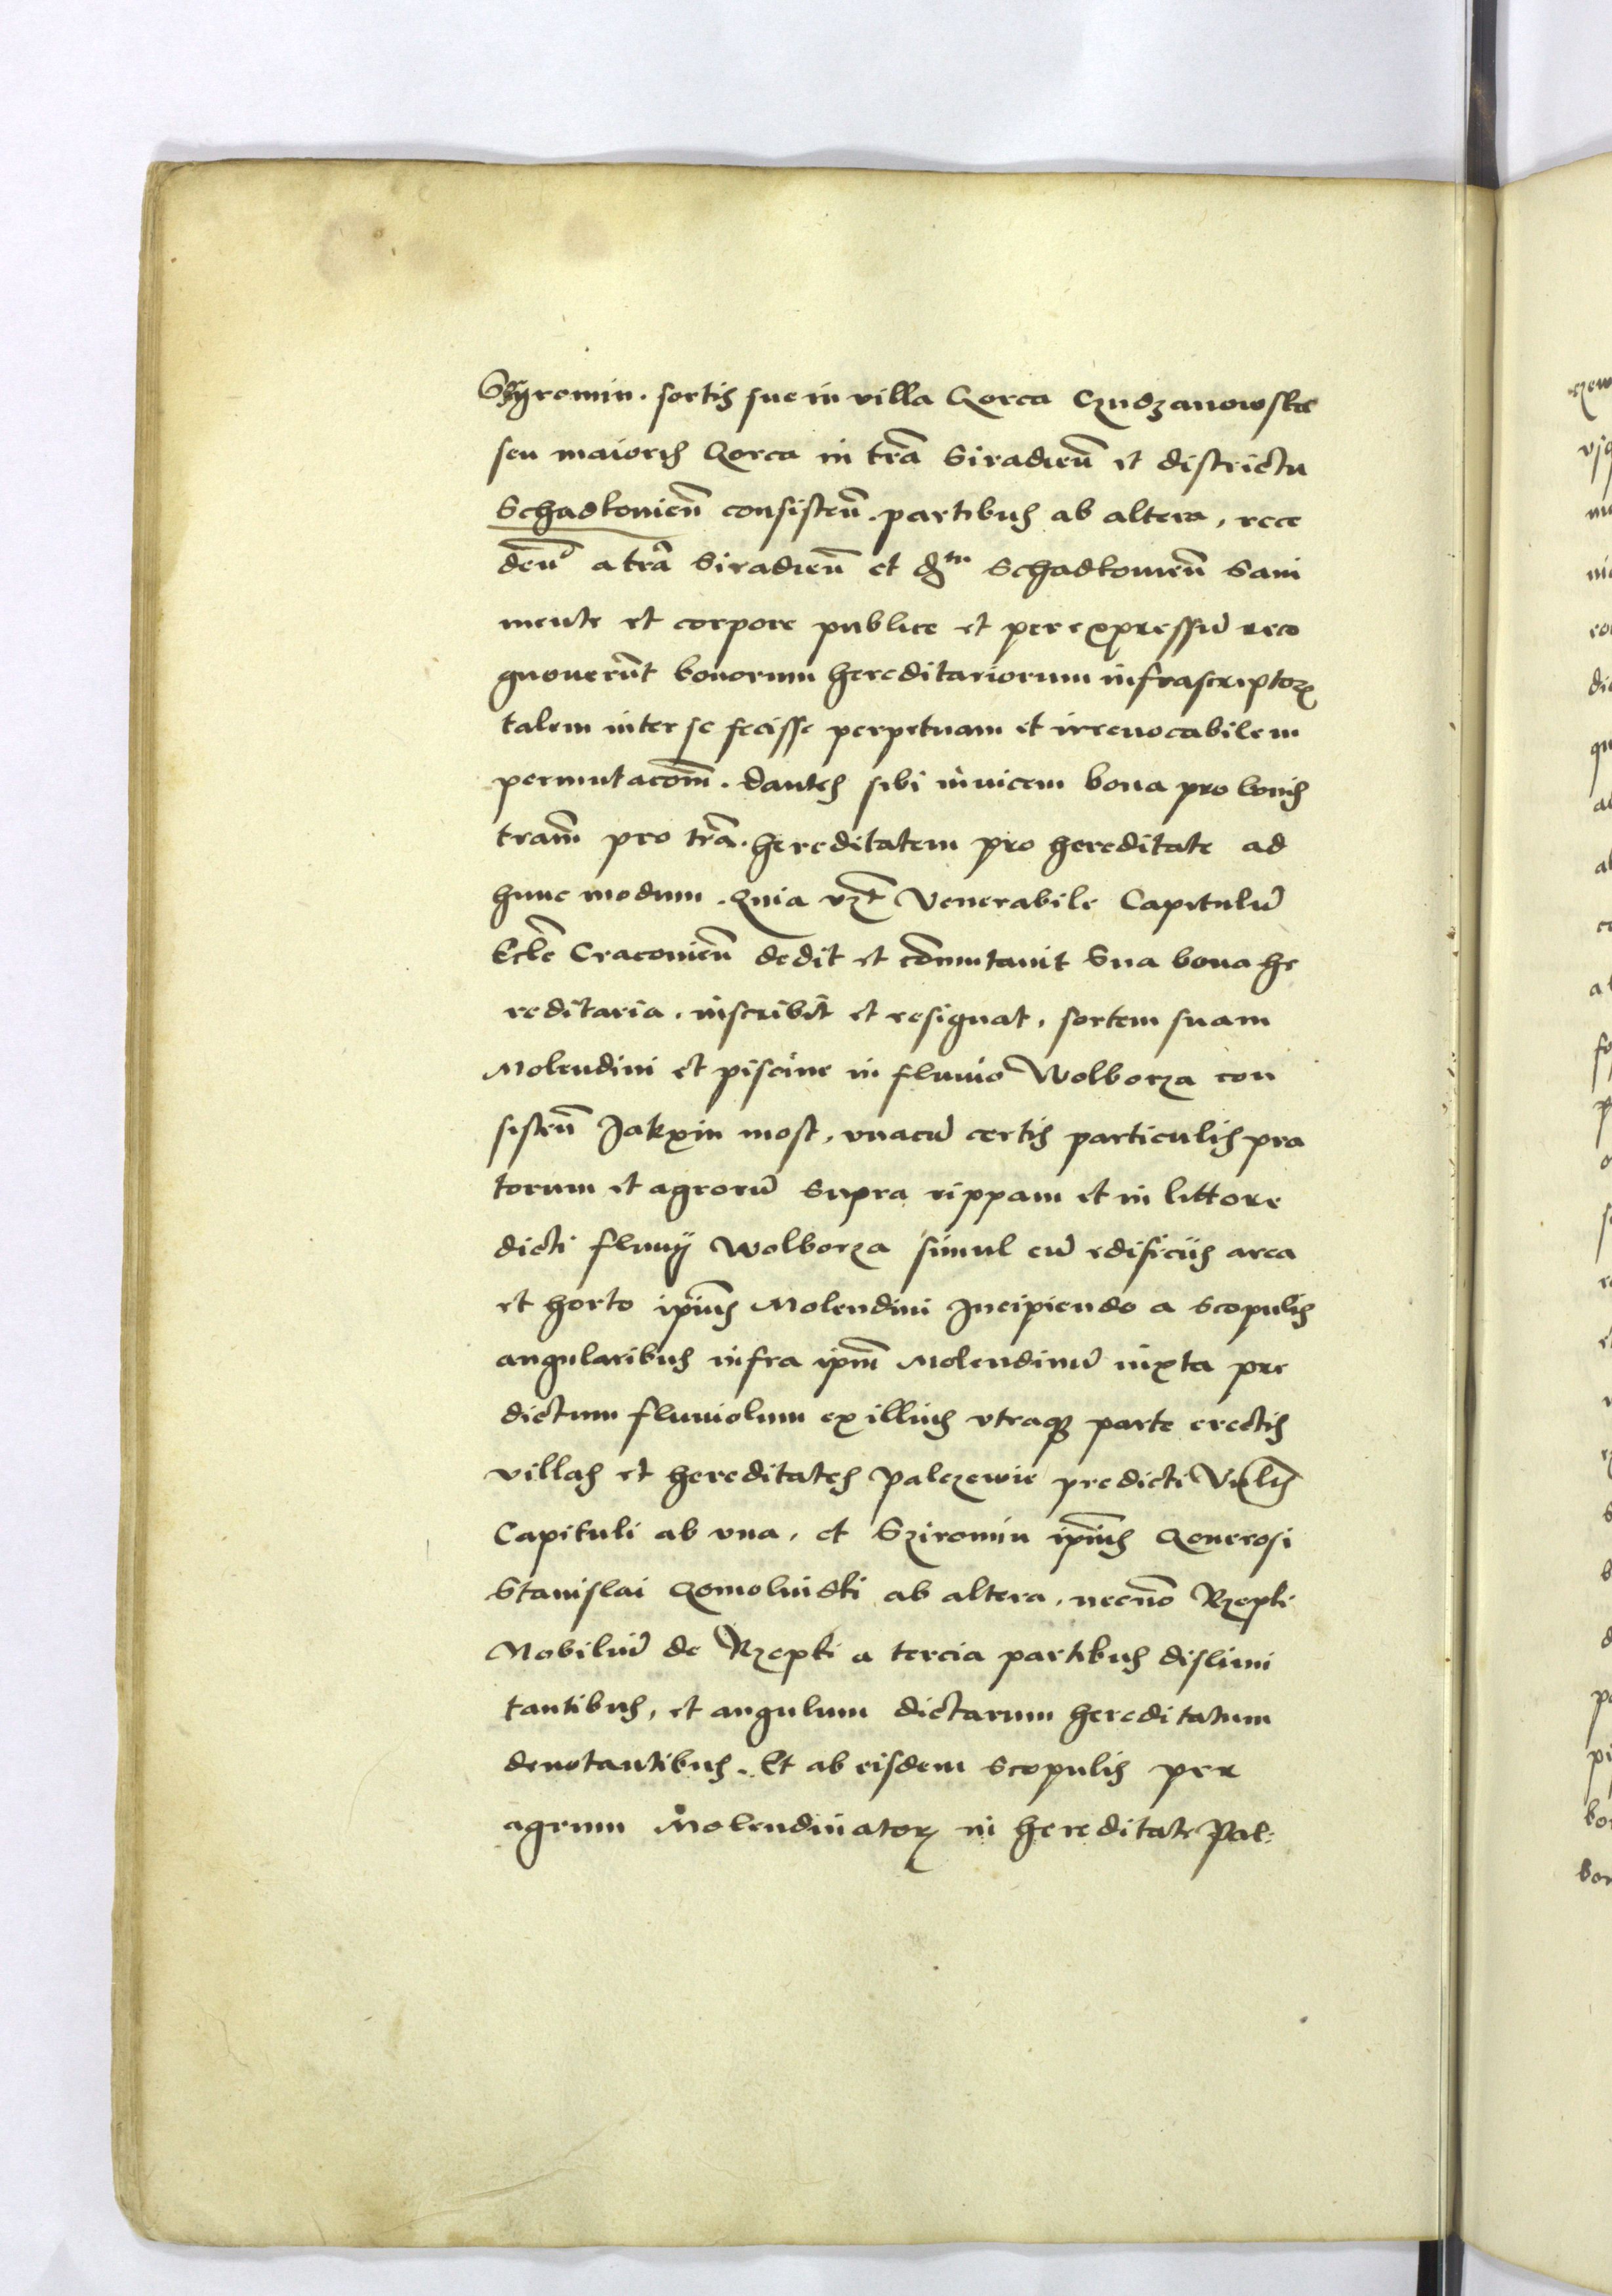 Szyromin. sortis sue in villa Gorca Czudzanowska
seu maioris Gorca in tr̃a Siradieñ et districtu
Schadkovieñ consisteñ. partibus ab altera, rece
deñ a tr̃a Siradieñ et d tu Schadkovieñ Sani
mente et corpore publice et per expressũ reco
gnoverũt bonorum hereditariorum infrascriptoꝝ
talem inter se fecisse perpetuam et irrevocabilem
permutacoẽm. dantes sibi invicem bona pro bonis
tram̃ pro tr̃a. hereditatem pro hereditate ad
hunc modum. Quia vꝫt Venerabile Capitulũ
Eccl̃e Cracovieñ dedit et cõmutavit Sua bona he
reditaria. inscribit et resignat, sortem suam
Molendini et piscine in fluvio Wolborza con
sisteñ Jakxin most, unacũ certis particulis pra
torum et agrorũ supra rippam et in littore
dicti fluvij Wolborza simul cũ edificiis area
et horto ip̃ius Molendini Incipiendo a scopulis
angularibus infra ip̃m Molendinũ iuxta pre
dictum fluviolum ex illius utraqꝫ parte erectis
villas et hereditates Palczewie predicti Vn̄lis
Capituli ab una, et Sziromin ip̃ius Generosi
Stanislai Gomolinski ab altera. necnõ Rzepki
Nobiliũ de Rzepki a tercia partibus dislimi
tantibus, et angulum dictarum hereditatum
denotantibus. Et ab eisdem scopulis per
agrum Molendinatoꝝ in hereditate Pal: